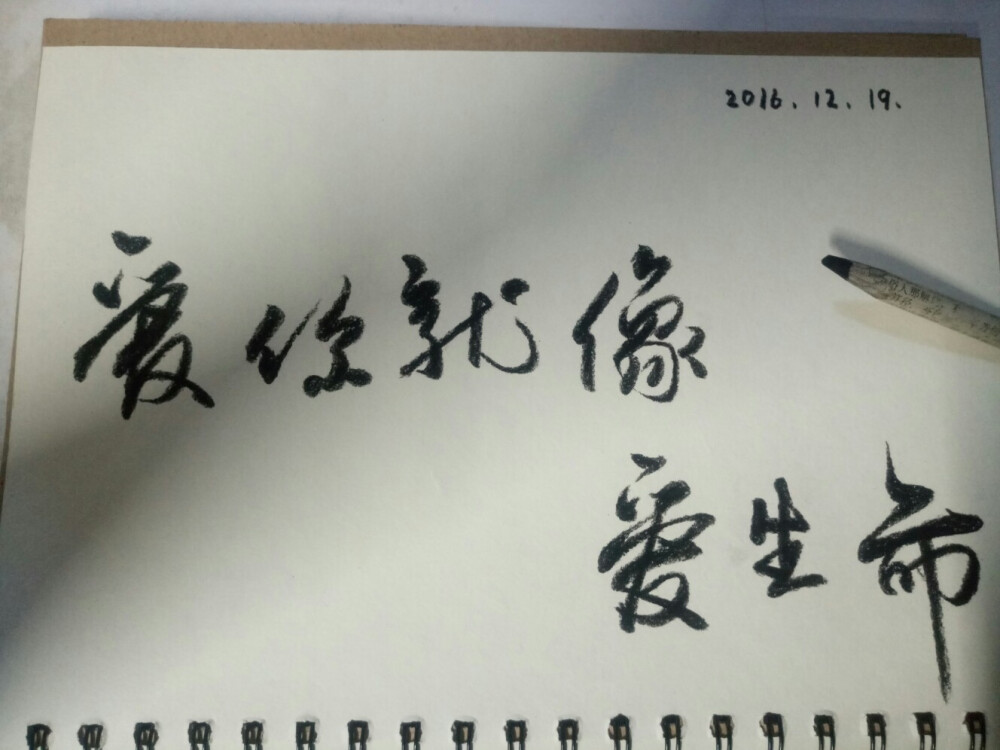 2016.12.19.
爱你就像
爱生命